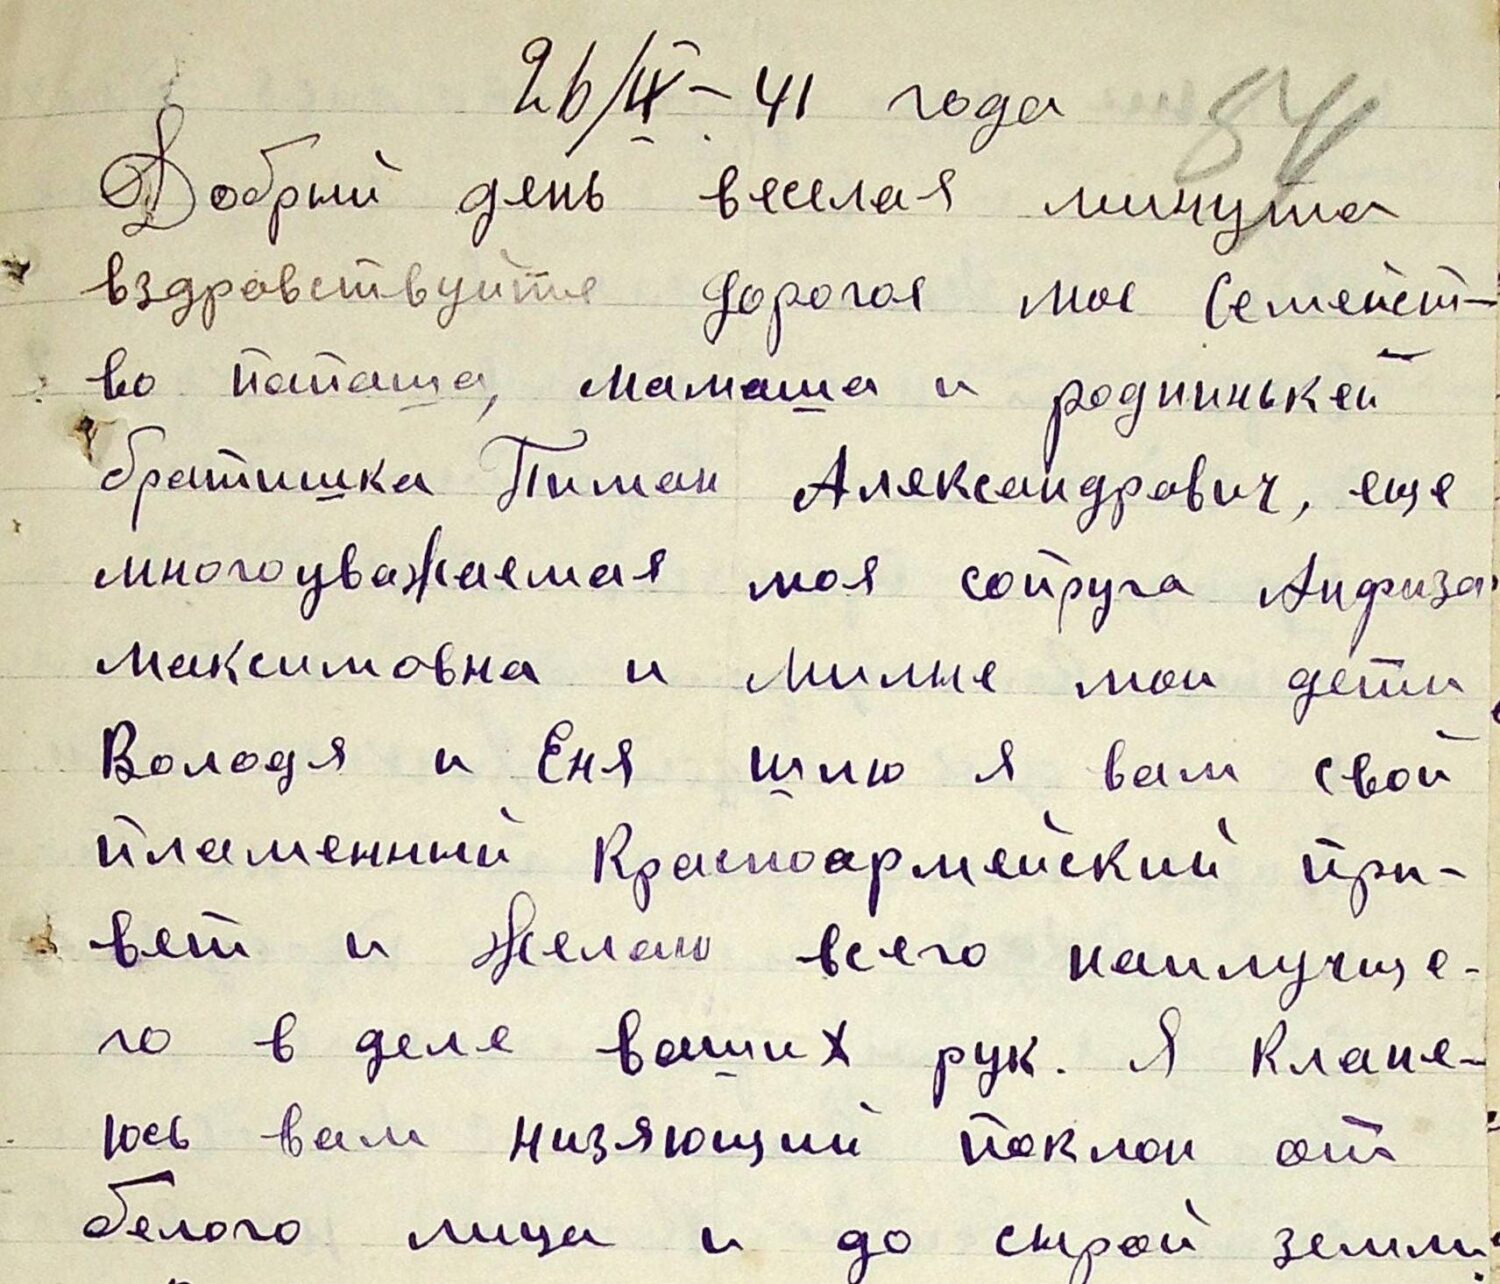 26/IX-41 года
84
Добрый день веселая минута
вздравствуйте дорогая мое семейст-
во папаша, мамаша и роднинькей
братишка Пиман Александрович, еще
многоуважаемая моя сопруга Анфиза
Максимовна и милые мои дети
Володя и Еня шлю я вам свой
пламенный Красноармейский при-
вет и желаю всего наилучше-
го в деле ваших рук. Я кланя-
юсь вам низяющий поклон от
белого лица и до сырой земли